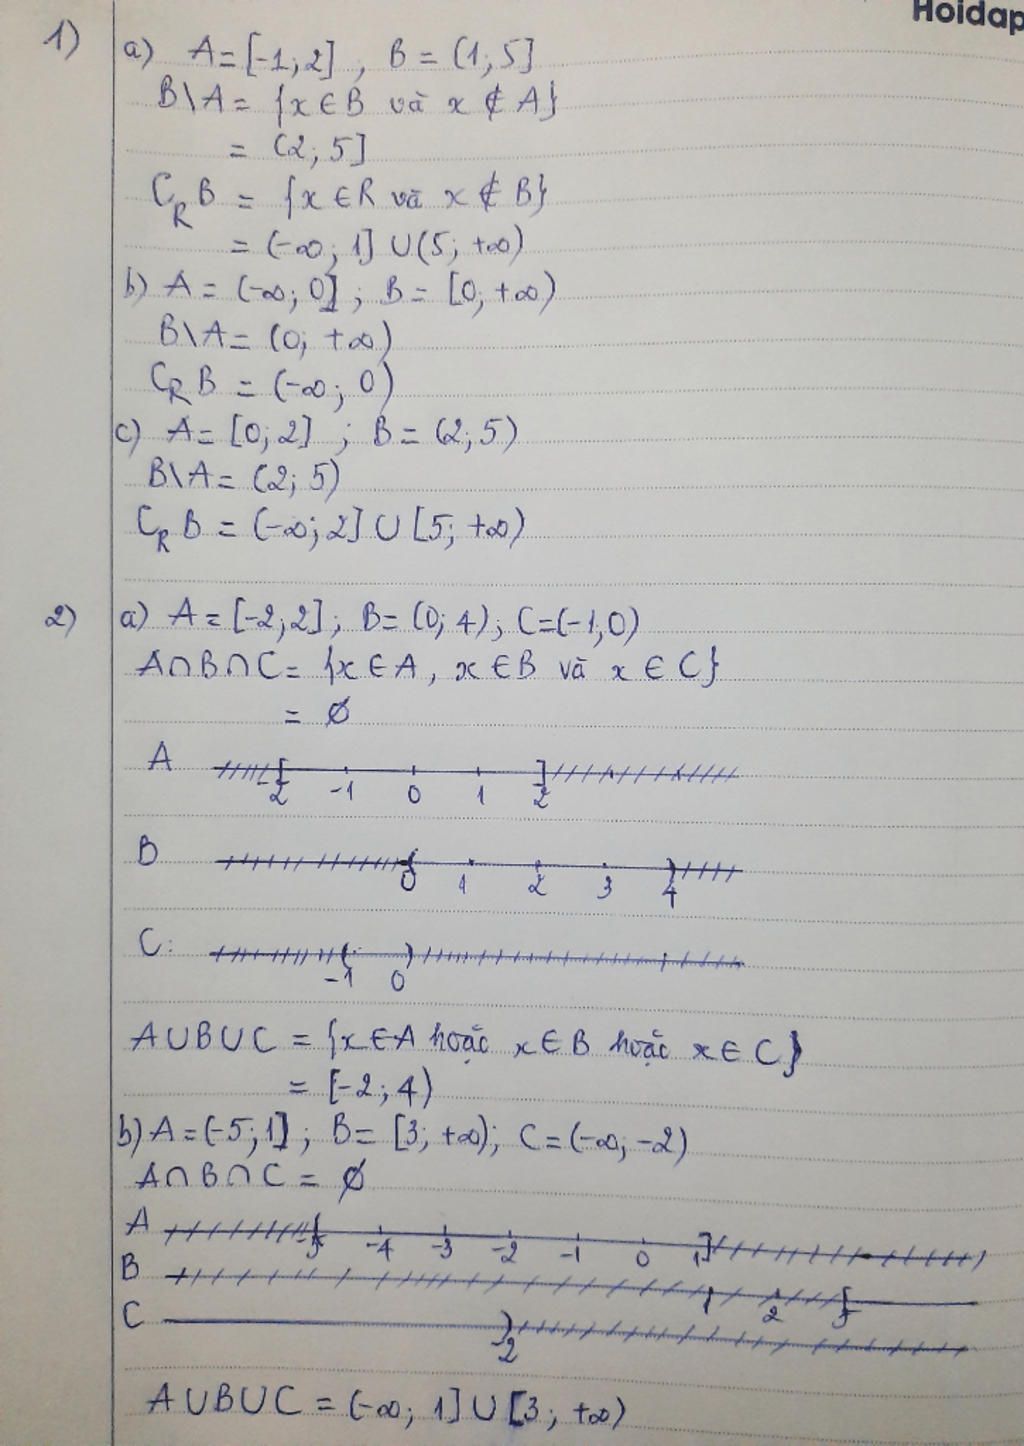 Hoidap
1) a) A = [-1; 2] , B = (1; 5]
B\A = {x ∈ B và x ∉ A}
= (2; 5]
C_R B = {x ∈ R và x ∉ B}
= (-∞; 1] ∪ (5; +∞)
b) A = (-∞; 0] ; B = [0; +∞)
B\A = (0; +∞)
C_R B = (-∞; 0)
c) A = [0; 2] ; B = (2; 5)
B\A = (2; 5)
C_R B = (-∞; 2] ∪ [5; +∞)
2) a) A = [-2; 2] ; B = (0; 4) ; C = (-1; 0)
A∩B∩C = {x ∈ A , x ∈ B và x ∈ C}
= ∅
A
-2 -1 0 1 2
B
0 1 2 3 4
C:
-1 0
A∪B∪C = {x ∈ A hoặc x ∈ B hoặc x ∈ C}
= [-2; 4)
b) A = (-5; 1] ; B = [3; +∞) ; C = (-∞; -2)
A∩B∩C = ∅
A
-5 -4 -3 -2 -1 0 1
B
1 2 3
C
-2
A∪B∪C = (-∞; 1] ∪ [3; +∞)